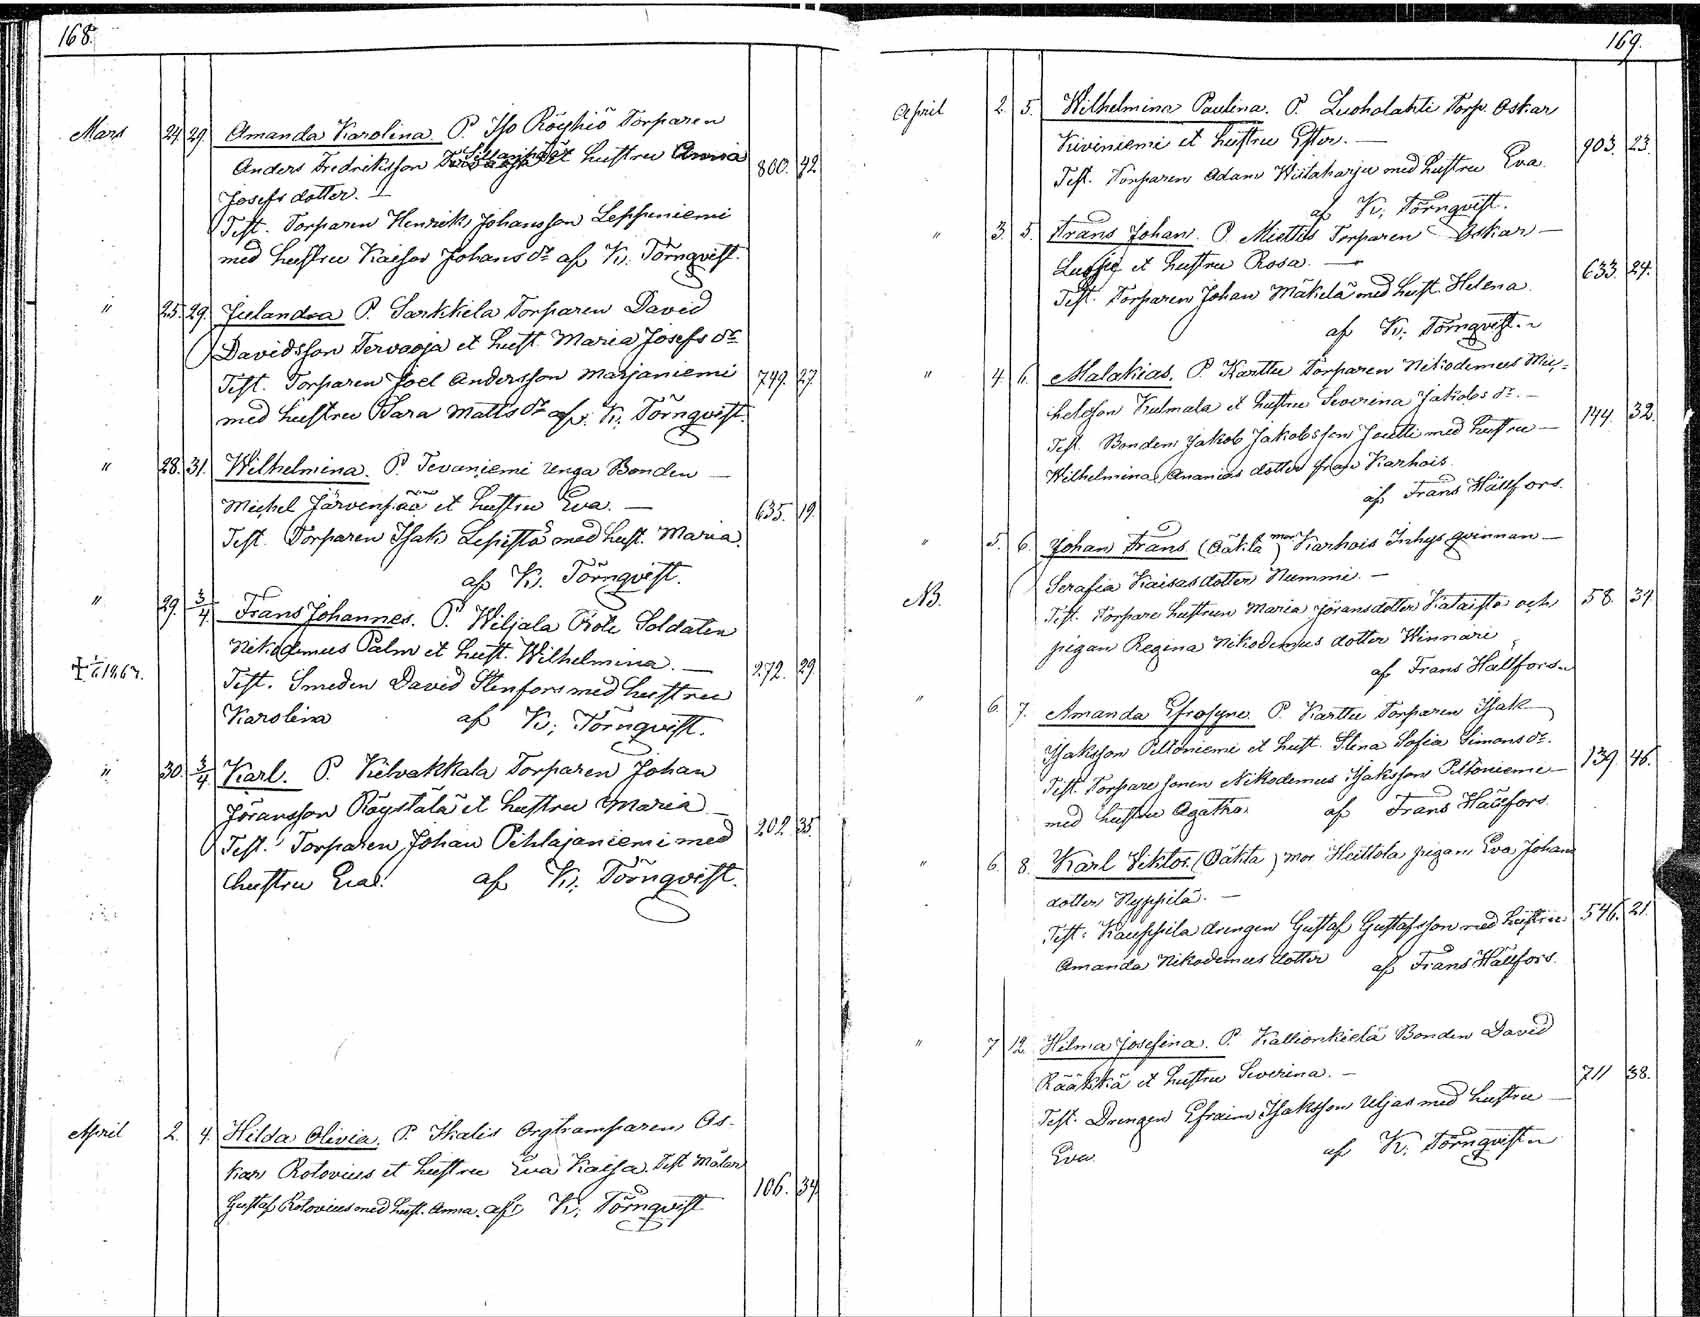 168.
Mars 24. 29. Amanda Karolina. P. Iso Röyhiö Torparen
Anders Fredriksson et hustru Anna 800. 42
Josefs dotter. —
Test. Torparen Henrik Johansson Leppeniemi
med hustru Kaisa Johans dr af K. Törnqvist.
" 25. 29. Julandra P. Sarkkila Torparen David
Davidsson Tervaoja et hust. Maria Josefs dr
Test. Torparen Joel Andersson Marjaniemi 749. 27.
med hustru Sara Matts dr af K. Törnqvist.
" 28. 31. Wilhelmina. P. Tevaniemi unga Bonden —
Michel Järvenpää et hustru Eva. — 635. 19.
Test. Torparen Isak Lepistö med hust. Maria.
af K. Törnqvist.
" 29. 3/4 Frans Johannes. P. Wiljala Rote Soldaten
Nikodemus Palm et hust. Wilhelmina. — 272. 29.
Test. Smeden David Stenfors med hustru
Karolina af K. Törnqvist.
" 30. 3/4 Karl. P. Kelvakkala Torparen Johan
Jöransson Röystälä et hustru Maria —
Test. Torparen Johan Pihlajaniemi med 202. 35.
hustru Eva. af K. Törnqvist.
April 2. 4. Hilda Olivia. P. Ikalis Orgtramparen Os-
kar Rotovius et hustru Eva Kaisa. Test Målar
Gustaf Rotovius med hust. Anna. af K. Törnqvist 106. 34.
169.
April 2. 5. Wilhelmina Paulina. P. Luoholahti Torp. Oskar
Kiviniemi et hustru Ester. — 903. 23.
Test. Torparen Adam Wiitaharju med hustru Eva.
af K. Törnqvist.
" 3. 5. Frans Johan. P. Miettis Torparen Oskar —
et hustru Rosa. — 633. 24.
Test. Torparen Johan Mäkelä med hust. Helena.
af K. Törnqvist.
" 4. 6. Malakias. P. Karttu Torparen Nikodemus Mic-
helsson Kulmala et hustru Severina Jakobs dr. — 144. 32.
Test. Bonden Jakob Jakobsson Joutti med hustru —
Wilhelmina Ananias dotter från Karhois.
af Frans Hällfors.
" 5. 6. Johan Frans (Oäkta) mor Karhois Inhys qvinnan —
Serafia Kaisas dotter Nummi. —
NB. Test. Torpare hustrun Maria Jöransdotter Kataisto och 58. 34
pigan Regina Nikodemus dotter Winnari
af Frans Hällfors.
" 6. 7. Amanda Efrosyne. P. Karttu Torparen Isak
Isaksson Peltoniemi et hust. Stina Sofia Simons dr. 139. 46.
Test. Torpare sonen Nikodemus Isaksson Peltoniemi —
med hustru Agatha. af Frans Hällfors.
" 6. 8. Karl Viktor. (Oäkta) mor Heittola pigan Eva Johans
dotter Hyppilä. —
Test. Kauppila drengen Gustaf Gustafsson med hustru 546. 21.
Amanda Nikodemus dotter af Frans Hällfors.
" 7 12. Hilma Josefina. P. Kallionkielä Bonden David
Rääkkä et hustru Severina. — 711 38.
Test. Drengen Efraim Isaksson Uljas med hustru —
Eva. af K. Törnqvist